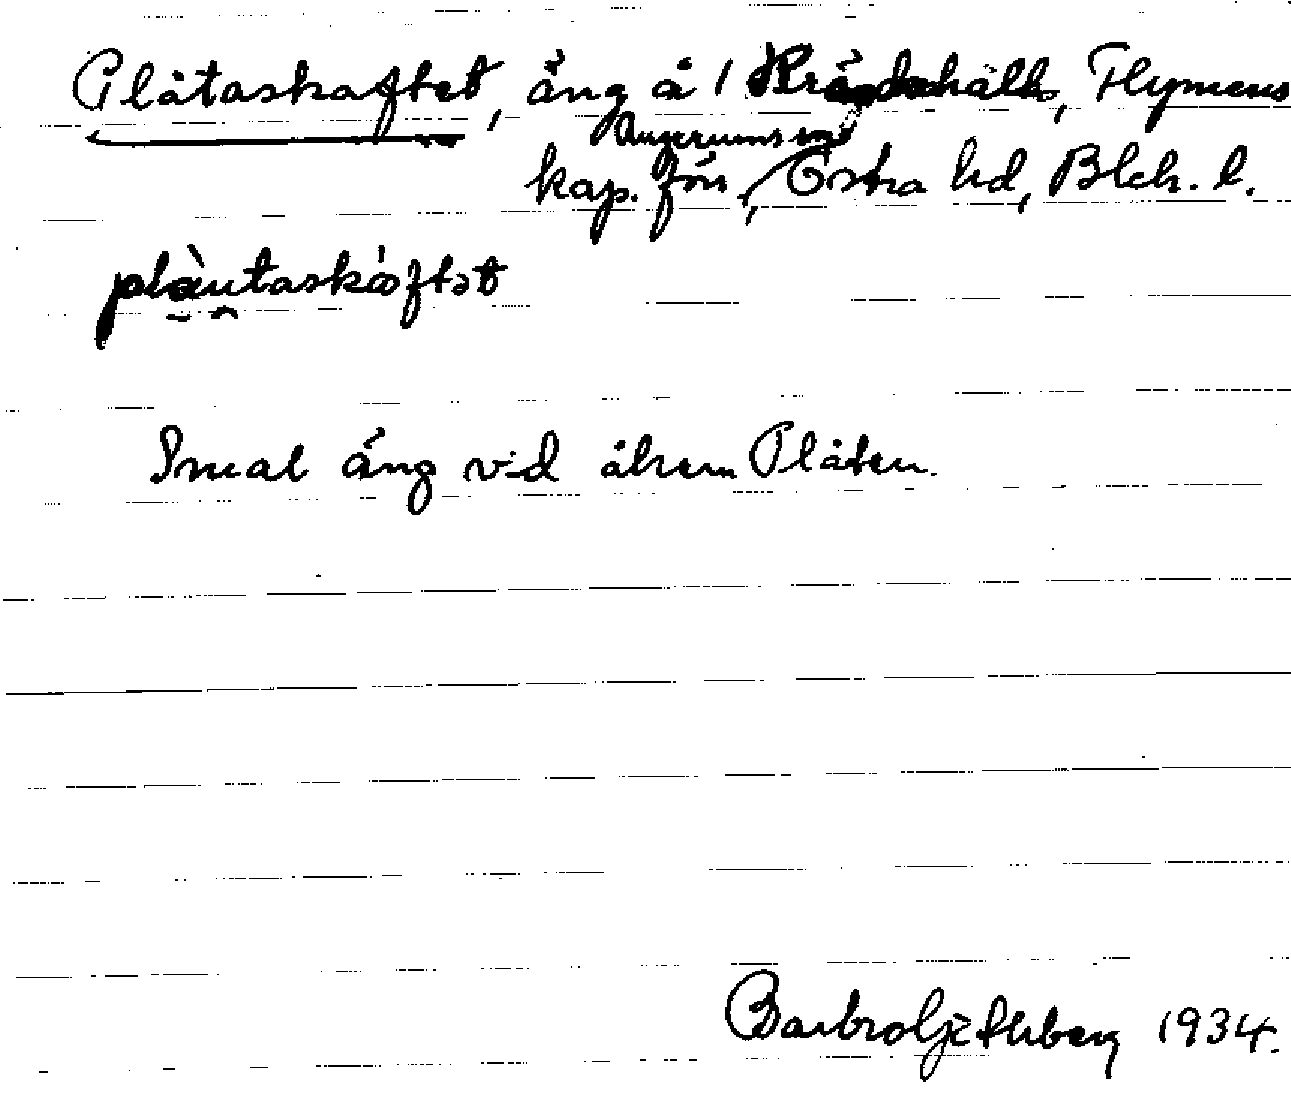 Plåtaskaftet, äng å 1 Flymens
Augerums sn
kap. förs, Östra hd, Blek. l.
plàutaskáftət
Smal äng vid åkern Plåten.
Barbro 1934.